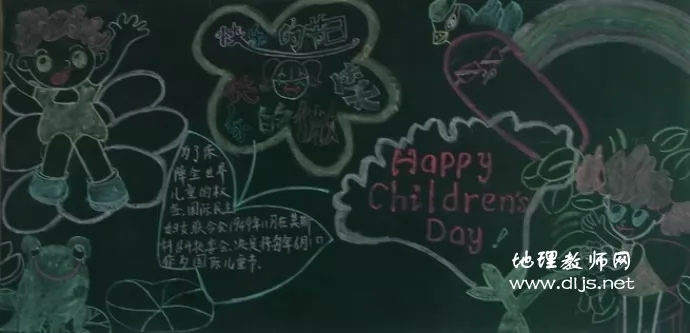 快乐的节日
快乐的
Happy
Children's
Day!
为了保
障全世界
儿童的权
益,国际民主
妇女联合会1949年11月在莫斯
科召开执委会,决定将每年6月1日
作为国际儿童节.
地理教师网
www.dijs.net